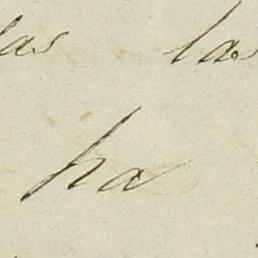 las las
ha